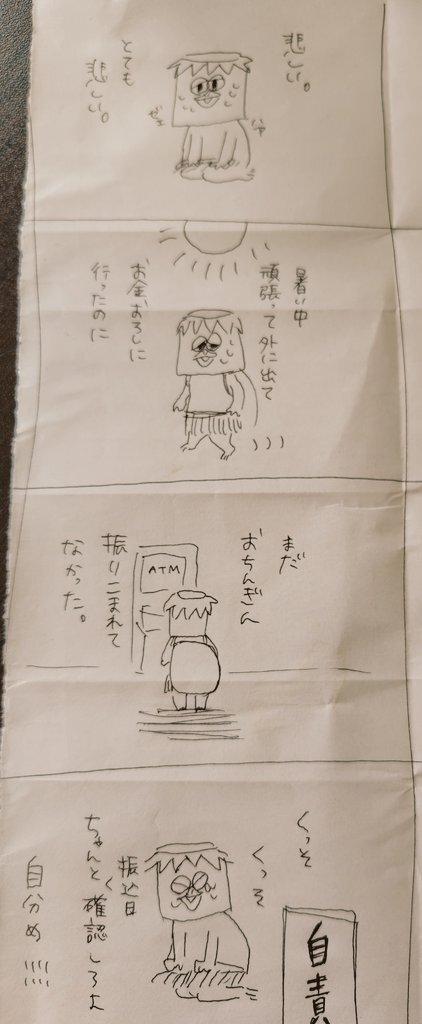 悲しい。
とても
悲しい。
ぜぇ
はぁ
暑い中
頑張って外に出て
お金おろしに
行ったのに
まだ
おちんぎん
振りこまれて
なかった。
ATM
くっそ
くっそ
振込日
ちゃんと確認しろよ
自分め
自責